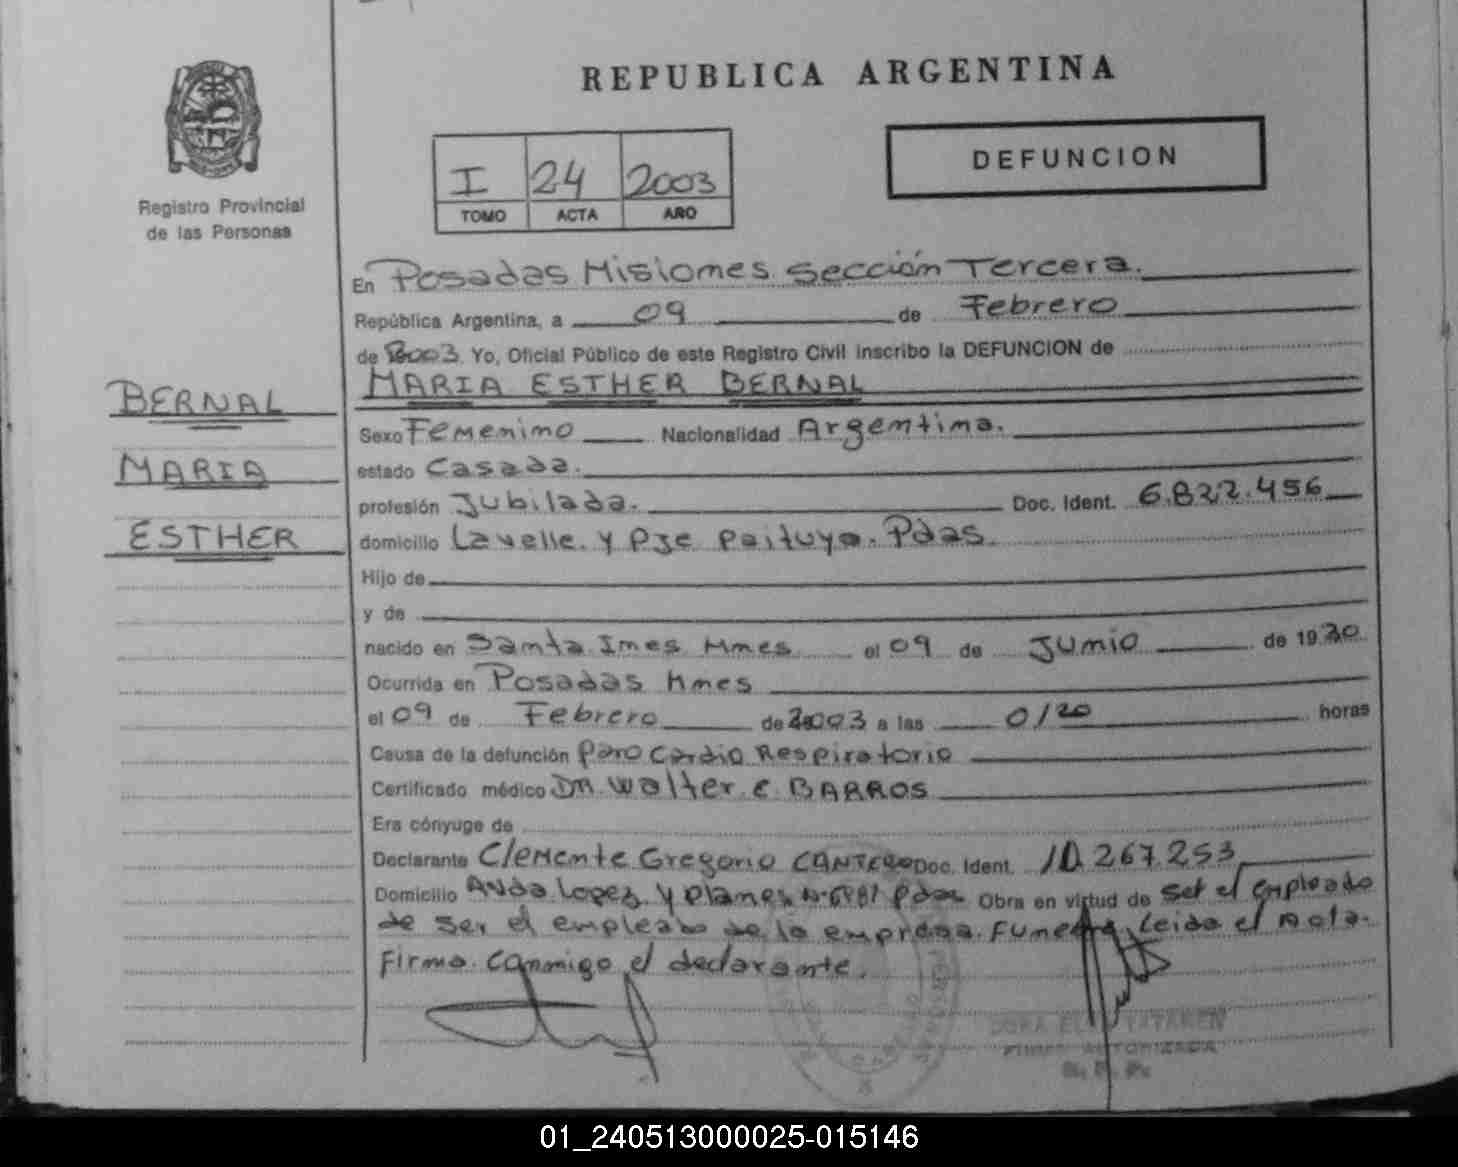 REPUBLICA ARGENTINA
DEFUNCION
I 24 2003
TOMO ACTA AÑO
Registro Provincial
de las Personas
En Posadas Misiones Sección Tercera.
República Argentina, a 09 de Febrero
de 2003 Yo, Oficial Público de este Registro Civil inscribo la DEFUNCION de
MARIA ESTHER BERNAL
BERNAL
MARIA
ESTHER
Sexo Femenino Nacionalidad Argentina.
estado Casada.
profesión Jubilada. Doc. Ident. 6.822.456
domicilio Lavalle. y Pje Paituya. Pdas.
Hijo de
y de
nacido en Santa Ines Mnes el 09 de Junio de 1930
Ocurrida en Posadas Mnes
el 09 de Febrero de 2003 a las 0/20 horas
Causa de la defunción Paro Cardio Respiratorio
Certificado médico Dr. Walter. E. BARROS
Era cónyuge de
Declarante Clemente Gregorio CANTERO Doc. Ident. 10.267.253
Domicilio Avda Lopez y Planes Pdas Obra en virtud de ser el empleado
de ser el empleado de la empresa Funebre, Leida el Acta.
Firma conmigo el declarante.
FIRMA AUTORIZADA
R. P. P.
01_240513000025-015146